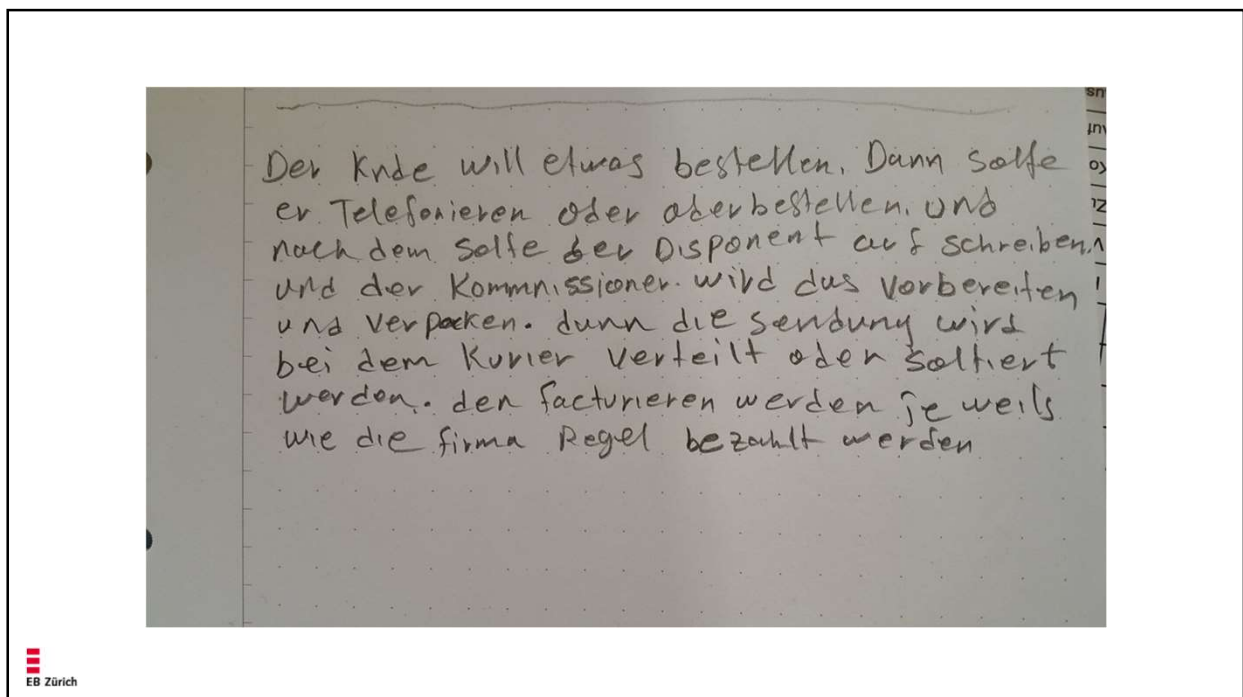 Der Knde will etwas bestellen. Dann solfe
er Telefonieren oder oderbestellen. und
nach dem solfe der Disponent auf schreiben.
und der Kommnissioner. wird das vorbereiten
und verpacken. dann die sendung wird
bei dem Kurier verteilt oder soltiert
werden. den facturieren werden jeweils
wie die firma Regel bezahlt werden
EB Zürich